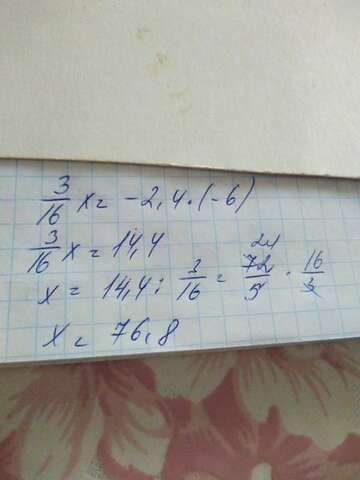 3/16 x = -2,4 · (-6)
3/16 x = 14,4
x = 14,4 : 3/16 = 72/5 · 16/3 24
x = 76,8